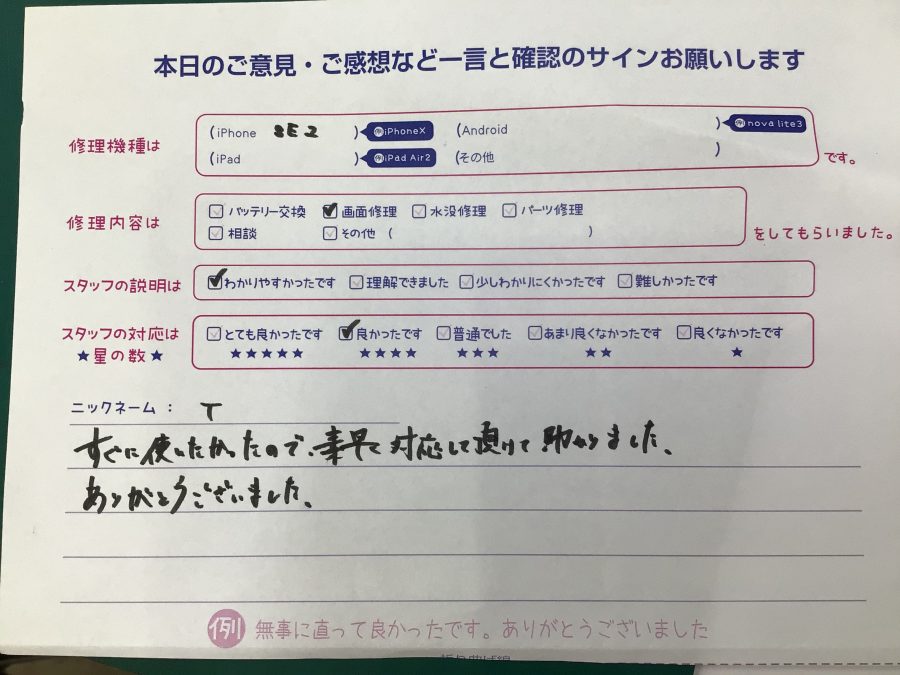 本日のご意見・ご感想など一言と確認のサインお願いします
修理機種は (iPhone SE2 ) iPhoneX (Android ) nova lite3
(iPad ) iPad Air2 (その他 ) です。
修理内容は バッテリー交換 画面修理 水没修理 パーツ修理
相談 その他 ( ) をしてもらいました。
スタッフの説明は わかりやすかったです 理解できました 少しわかりにくかったです 難しかったです
スタッフの対応は とても良かったです 良かったです 普通でした あまり良くなかったです 良くなかったです
★星の数★ ★★★★★ ★★★★ ★★★ ★★ ★
ニックネーム: T
すぐに使いたかったので、素早く対応して頂けて助かりました。
ありがとうございました。
例 無事に直って良かったです。ありがとうございました